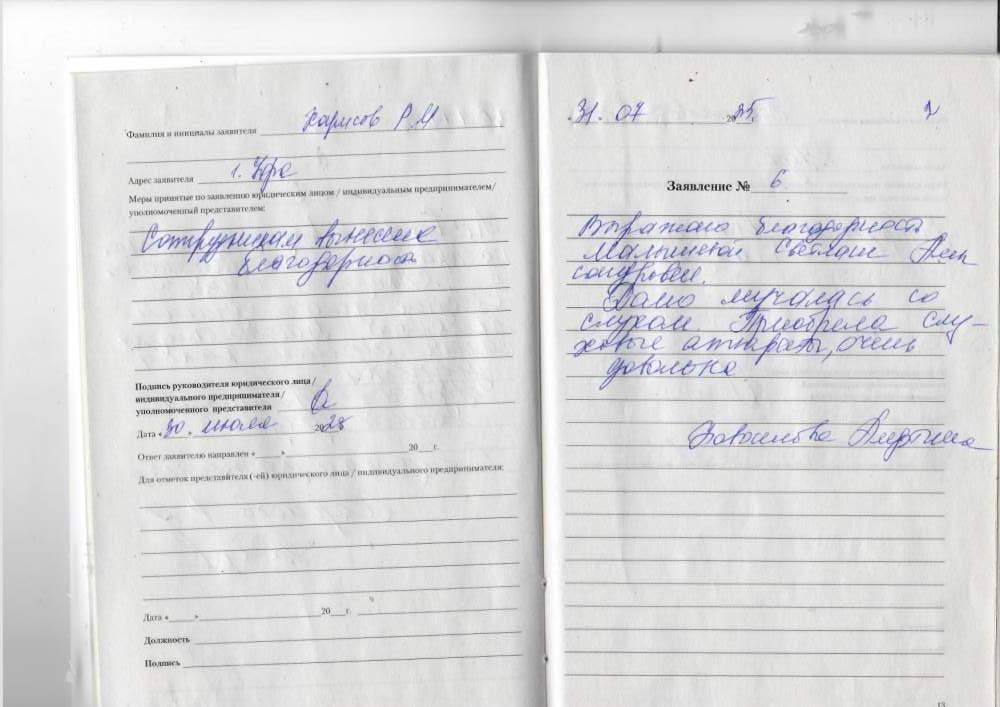 Фамилия и инициалы заявителя Харисов Р. М
Адрес заявителя г. Уфа
Меры принятые по заявлению юридическим лицом / индивидуальным предпринимателем/
уполномоченный представителем:
Сотрудникам вынесена
благодарность
Подпись руководителя юридического лица/
индивидуального предпринимателя/
уполномоченного представителя
Дата «30» июля 20 г.
Ответ заявителю направлен «____» 20___г.
Для отметок представителя (-ей) юридического лица / индивидуального предпринимателя:
Дата «____» 20___г.
Должность
Подпись
31. 07 2025г.
Заявление № 6
Выражаю благодарность
Малышевой Светлане Алек
сандровне.
Давно мучалась со
слухом. Приобрела слу-
ховые аппараты, очень
довольна
13